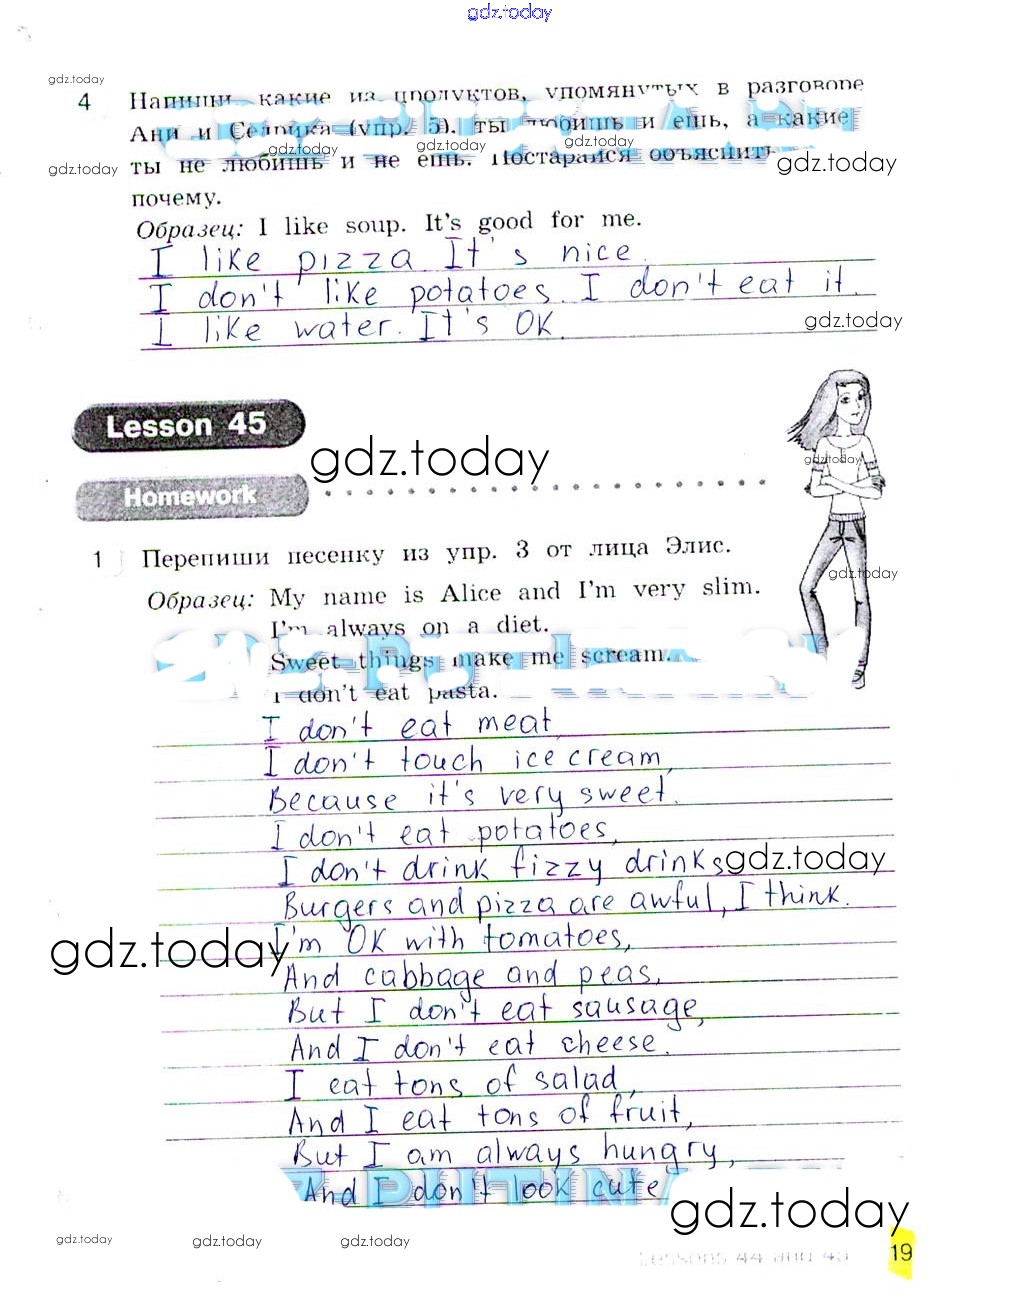 gdz.today
gdz.today
4 Напиши, какие из продуктов, упомянутых в разговоре
Ани и Седрика (упр. 5), ты любишь и ешь, а какие
gdz.today gdz.today gdz.today
gdz.today ты не любишь и не ешь. Постарайся объяснить gdz.today
почему.
Образец: I like soup. It's good for me.
I like pizza It's nice.
I don't like potatoes. I don't eat it.
I like water. It's OK.
gdz.today
Lesson 45
gdz.today
gdz.today
Homework
1 Перепиши песенку из упр. 3 от лица Элис.
gdz.today
Образец: My name is Alice and I'm very slim.
I'm always on a diet.
Sweet things make me scream.
I don't eat pasta.
I don't eat meat,
I don't touch ice cream,
Because it's very sweet.
I don't eat potatoes,
I don't drink fizzy drinks gdz.today
Burgers and pizza are awful, I think.
gdz.today I'm OK with tomatoes,
And cabbage and peas,
But I don't eat sausage,
And I don't eat cheese.
I eat tons of salad,
And I eat tons of fruit,
But I am always hungry,
And I don't look cute
gdz.today
gdz.today gdz.today gdz.today
Lessons 44 and 45 19